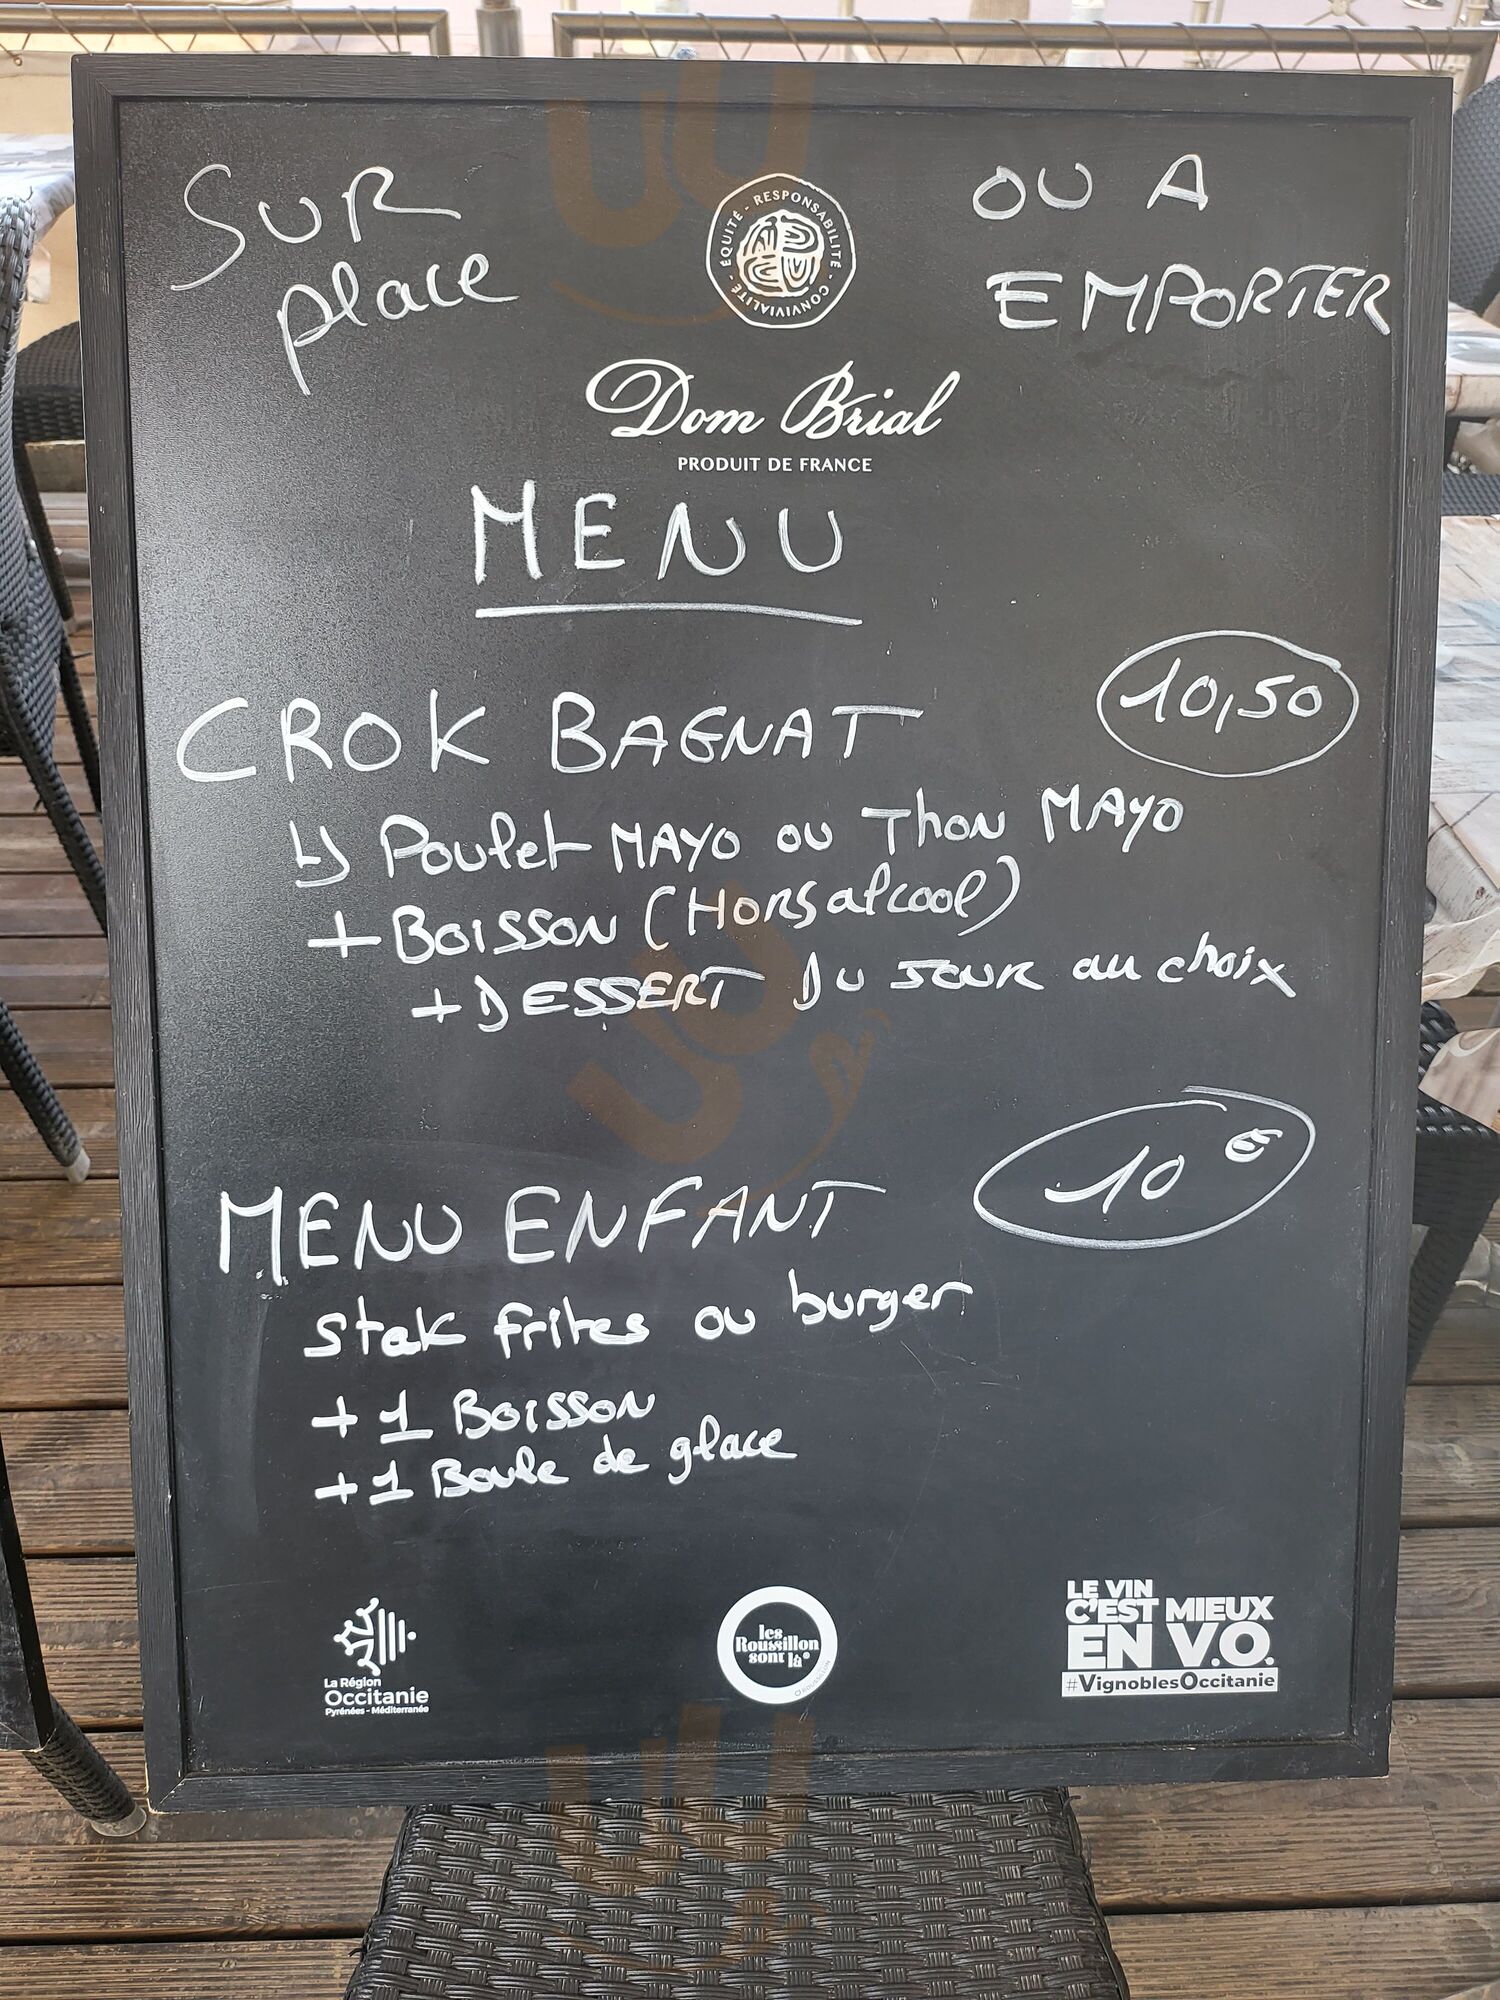 SUR place
OU A EMPORTER
ÉQUITÉ - RESPONSABILITÉ - CONVIVIALITÉ -
Dom Brial
PRODUIT DE FRANCE
MENU
CROK BAGNAT 10,50
↳ Poulet MAYO ou Thon MAYO
+ BOISSON (HORS alcool)
+ DESSERT DU JOUR au choix
MENU ENFANT 10 €
stek frites ou burger
+ 1 BOISSON
+ 1 Boule de glace
La Région
Occitanie
Pyrénées - Méditerranée
les
Roussillon
sont là
ROUSSILLON
LE VIN
C'EST MIEUX
EN V.O.
#VignoblesOccitanie